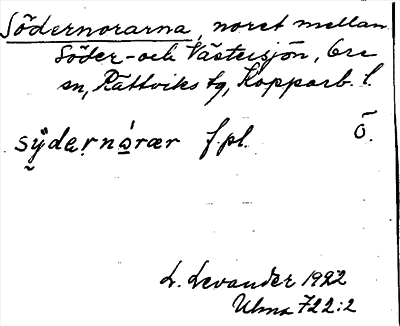 Södernorarna, noret mellan
Söder- och Västersjön, Ore
sn, Rättviks tg, Kopparb. l.
södernårær f.pl. Ö.
L. Levander 1922
Ulma 722:2